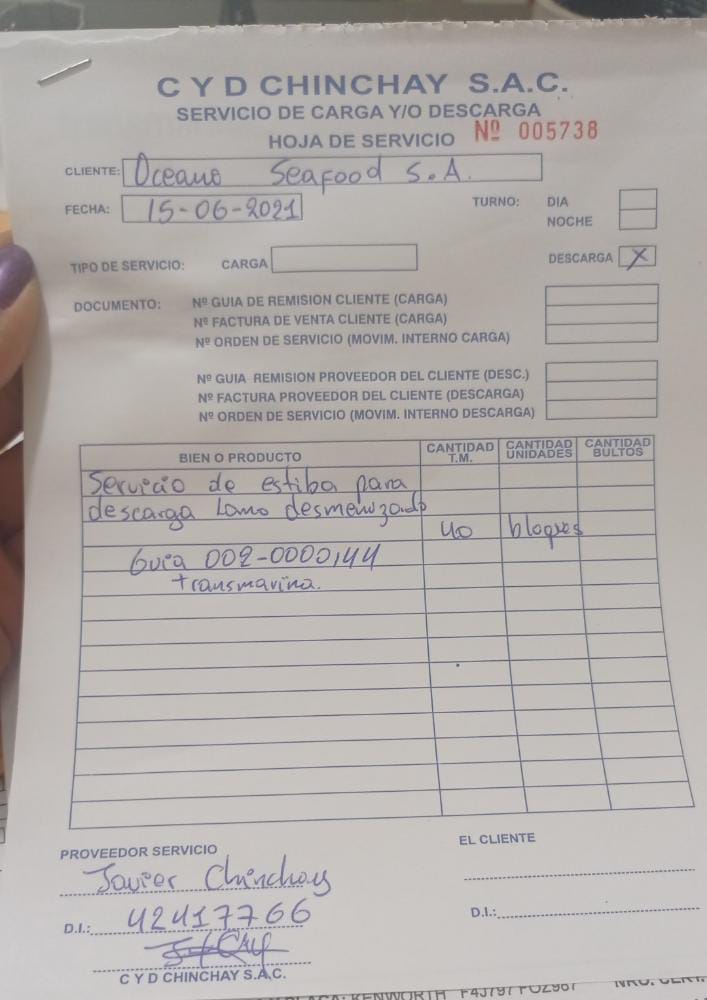 C Y D CHINCHAY S.A.C.
SERVICIO DE CARGA Y/O DESCARGA
HOJA DE SERVICIO Nº 005738
CLIENTE: Oceano Seafood S.A.
FECHA: 15-06-2021 TURNO: DIA
NOCHE
TIPO DE SERVICIO: CARGA DESCARGA X
DOCUMENTO: Nº GUIA DE REMISION CLIENTE (CARGA)
Nº FACTURA DE VENTA CLIENTE (CARGA)
Nº ORDEN DE SERVICIO (MOVIM. INTERNO CARGA)
Nº GUIA REMISION PROVEEDOR DEL CLIENTE (DESC.)
Nº FACTURA PROVEEDOR DEL CLIENTE (DESCARGA)
Nº ORDEN DE SERVICIO (MOVIM. INTERNO DESCARGA)
BIEN O PRODUCTO CANTIDAD T.M. CANTIDAD UNIDADES CANTIDAD BULTOS
Servicio de estiba para
descarga Lomo desmenuzado
40 bloques
Guia 002-0000144
transmarina.
PROVEEDOR SERVICIO EL CLIENTE
Javier Chinchay
D.I.: 42417766 D.I.:
C Y D CHINCHAY S.A.C.
KENWORTH